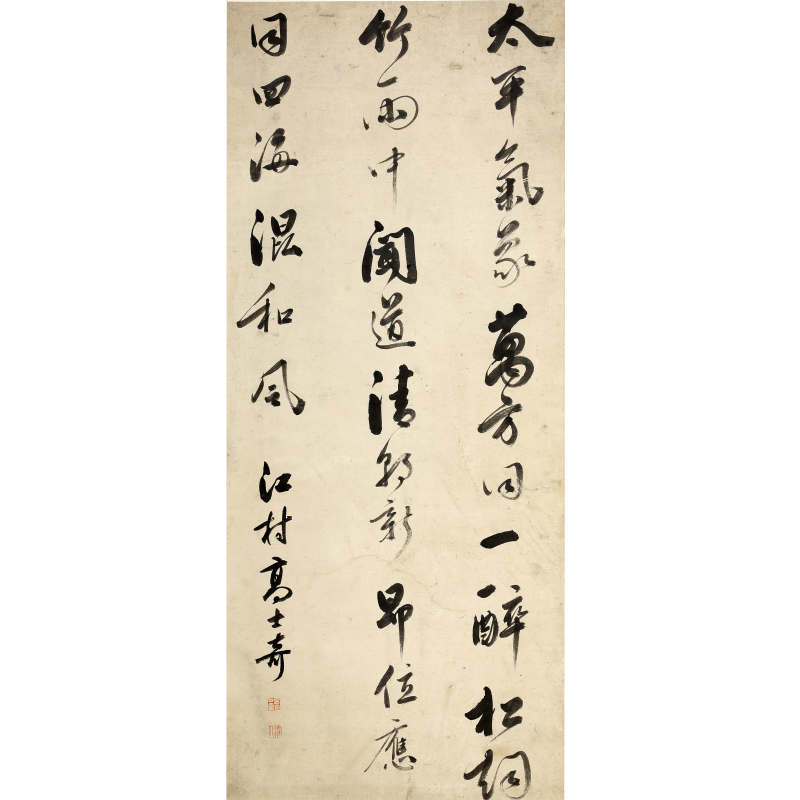 太平氣象萬方同一醉松
竹雨中聞道清朝新即位應
同四海混和風
江村高士奇